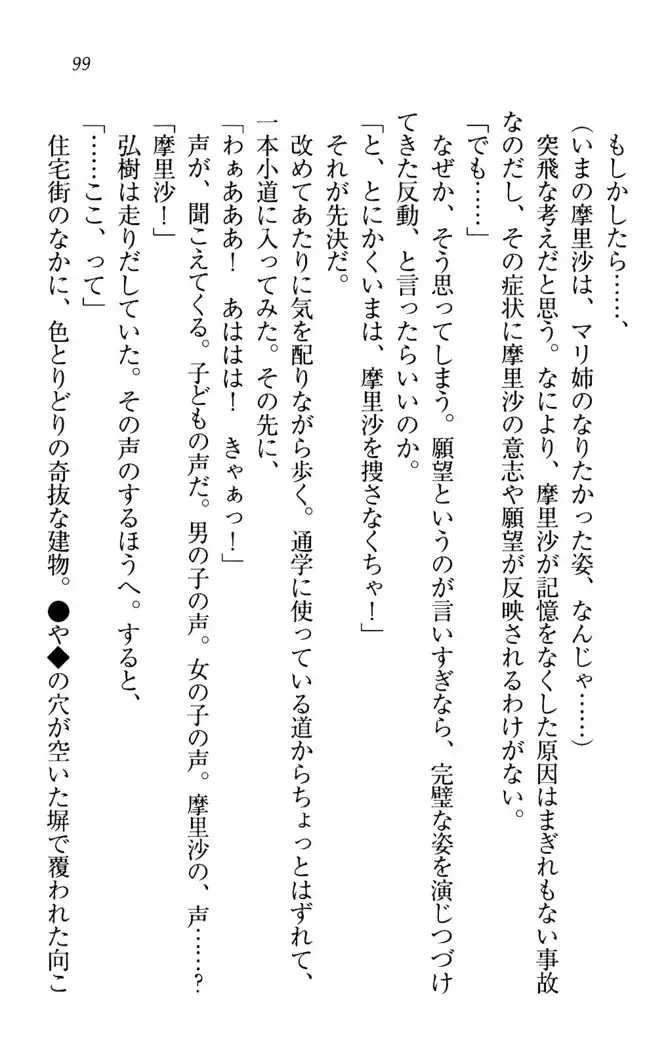 99
もしかしたら……、
(いまの摩里沙は、マリ姉のなりたかった姿、なんじゃ……)
突飛な考えだと思う。なにより、摩里沙が記憶をなくした原因はまぎれもない事故
なのだし、その症状に摩里沙の意志や願望が反映されるわけがない。
「でも……」
なぜか、そう思ってしまう。願望というのが言いすぎなら、完璧な姿を演じつづけ
てきた反動、と言ったらいいのか。
「と、とにかくいまは、摩里沙を捜さなくちゃ!」
それが先決だ。
改めてあたりに気を配りながら歩く。通学に使っている道からちょっとはずれて、
一本小道に入ってみた。その先に、
「わぁあああ! あははは! きゃぁっ!」
声が、聞こえてくる。子どもの声だ。男の子の声。女の子の声。摩里沙の、声……?
「摩里沙!」
弘樹は走りだしていた。その声のするほうへ。すると、
「……ここ、って」
住宅街のなかに、色とりどりの奇抜な建物。●や◆の穴が空いた塀で覆われた向こ